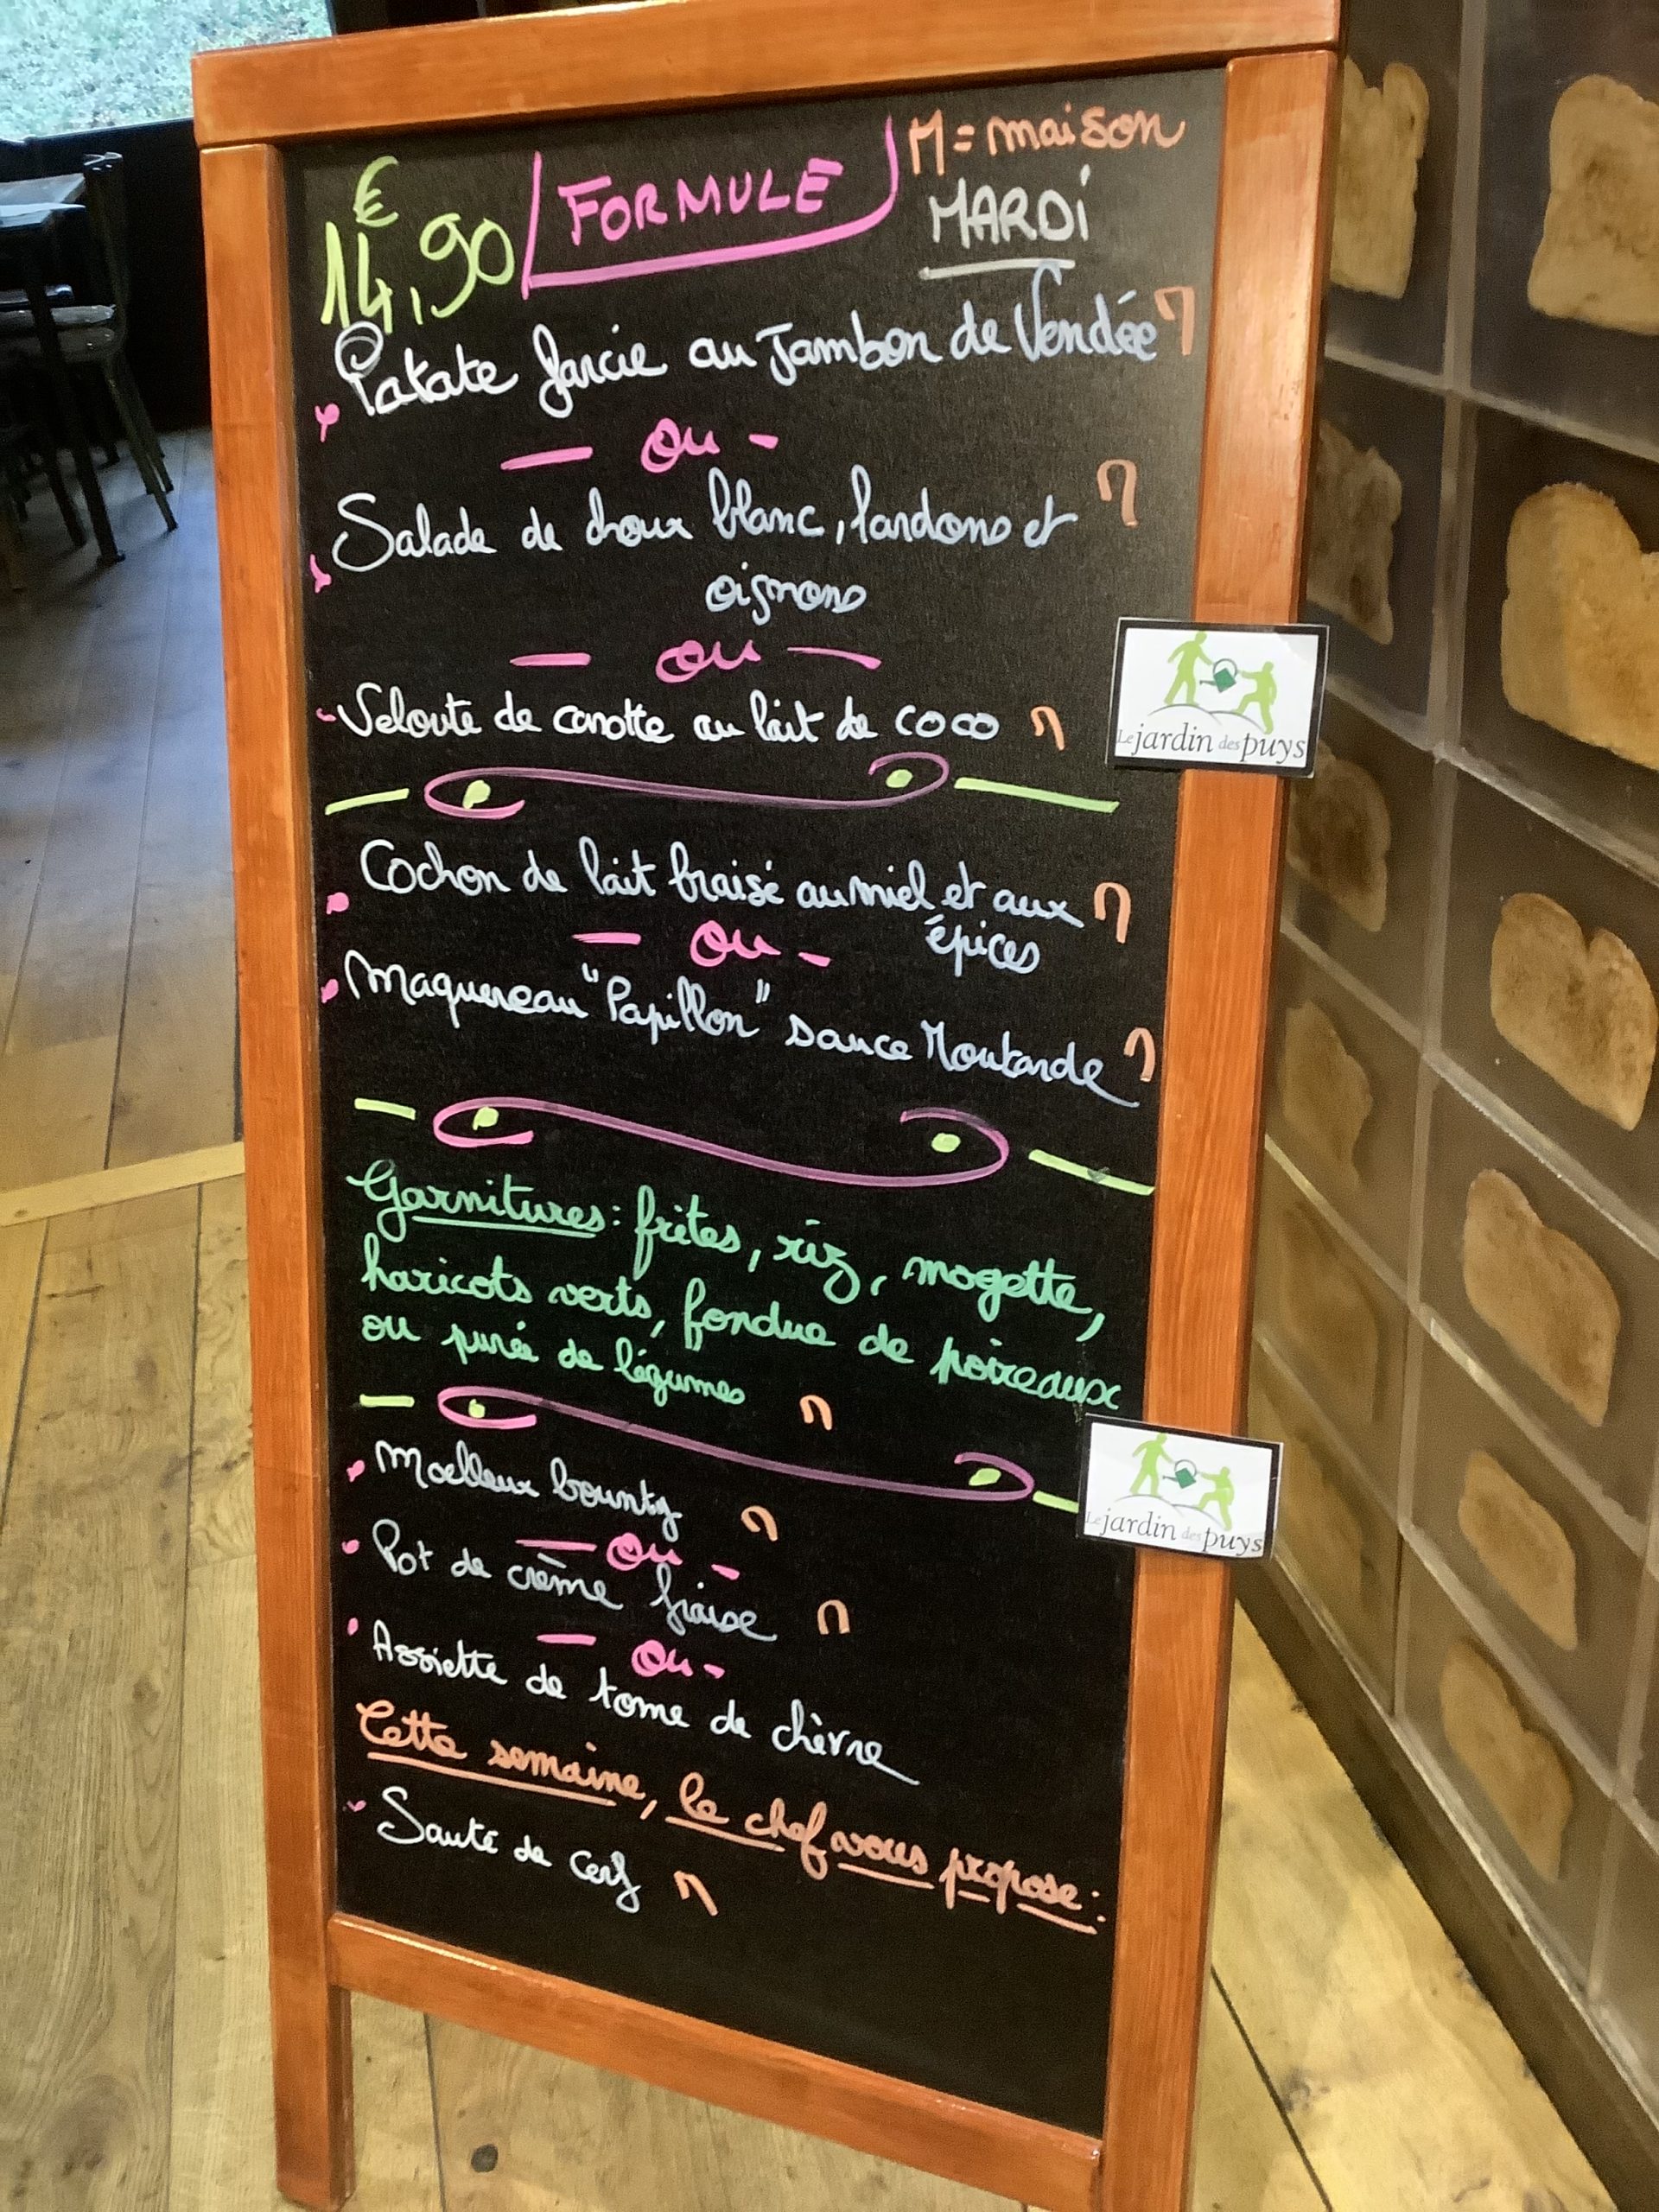 14,90 € FORMULE M = maison
MARDI
Patate farcie au Jambon de Vendée M
- ou -
Salade de choux blanc, lardons et M
oignons
- ou -
Velouté de carotte au lait de coco M
Le jardin des puys
Cochon de lait braisé au miel et aux M
épices
- ou -
Maquereau "Papillon" sauce Moutarde M
Garnitures : frites, riz, mogette,
haricots verts, fondue de poireaux
ou purée de légumes M
Moelleux bounty M
Le jardin des puys
- ou -
Pot de crème fraise M
- ou -
Assiette de tome de chèvre
Cette semaine, le chef vous propose :
Sauté de cerf M